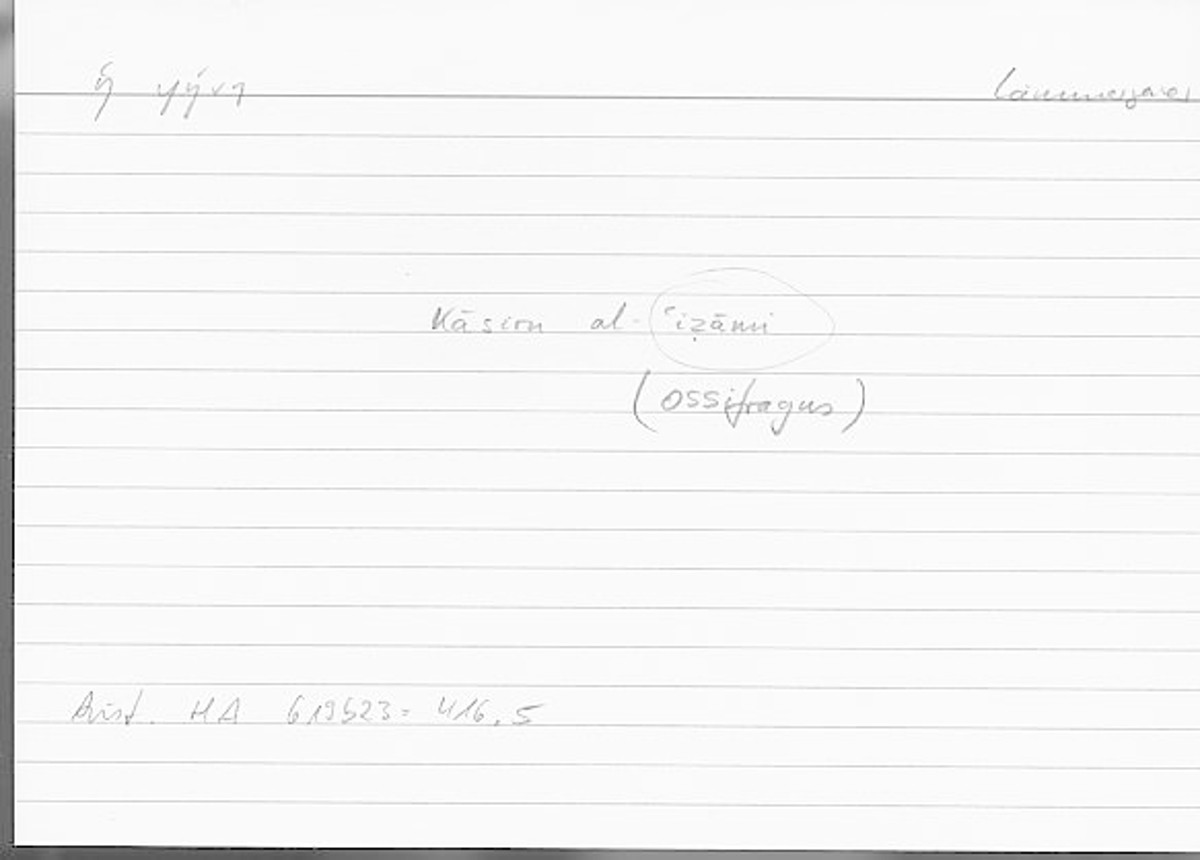 ἡ φήνη Lämmergeier
Kāsiru al-ʿiẓāmi
(ossifragus)
Arist. HA 619b23 = 416,5